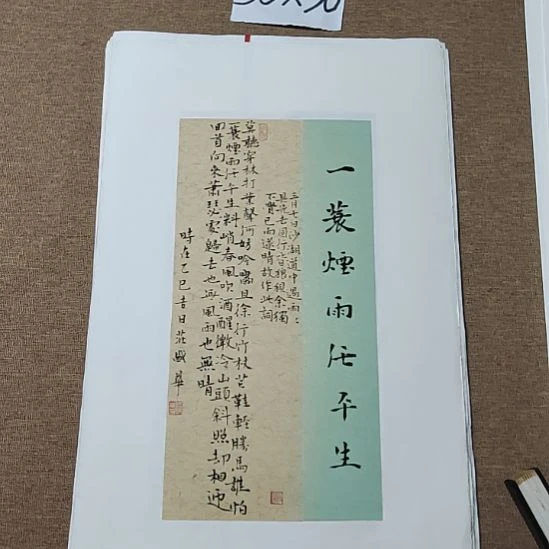 一蓑煙雨任平生
三月七日沙湖道中遇雨雨
具先去同行皆狼狽余獨
不覺已而遂晴故作此詞
莫聽穿林打葉聲何妨吟嘯且徐行竹杖芒鞋輕勝馬誰怕
一蓑煙雨任平生料峭春風吹酒醒微冷山頭斜照却相迎
回首向來蕭瑟處歸去也無風雨也無晴
時在乙巳吉日